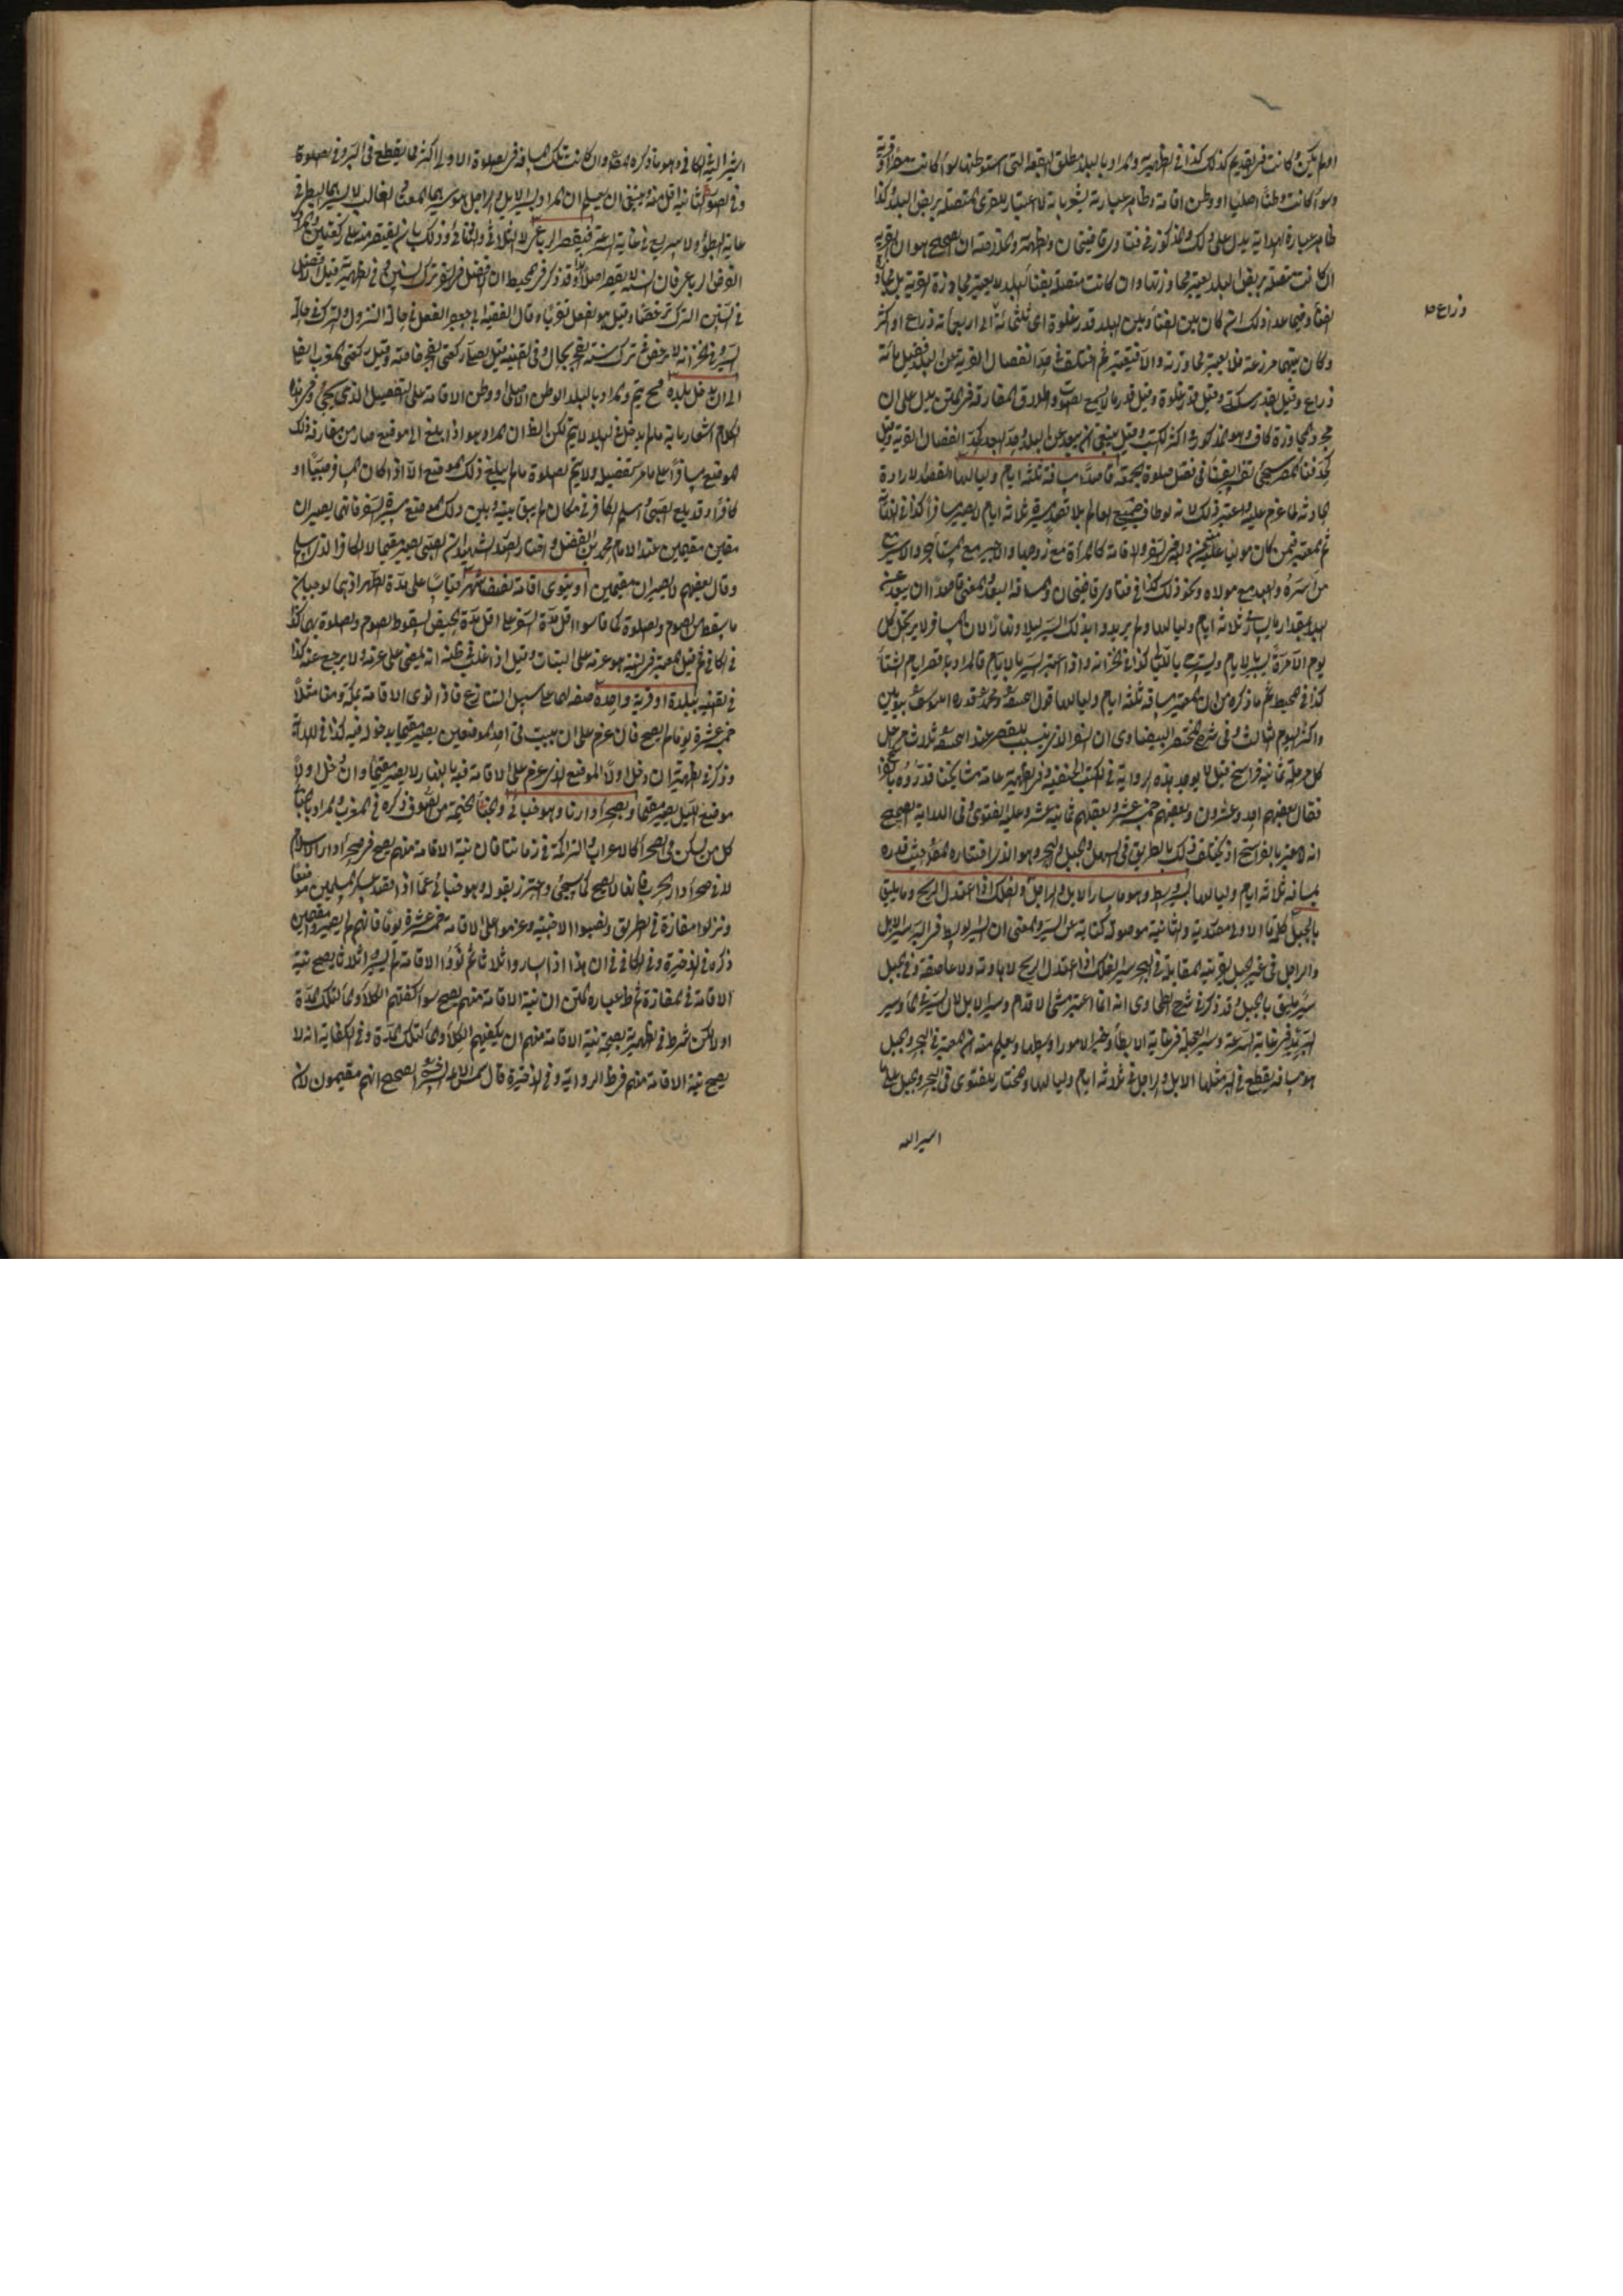 او لم يكن وكانت في القديم كذلك كذا في الظهيرية والمراد بالبلد مطلق البقعة التي استوطنها سواء كانت مصرا او قرية
وسواء كانت وطنا اصليا او وطن اقامة وظاهر عبارته يشعر بانه لا اعتبار للقرى المتصلة بربض البلد وكذا
ظاهر عبارة الهداية يدل على ذلك والمذكور في فتاوى قاضيخان والظهيرية ان الصحيح هو ان القرية
ان كانت متصلة بربض البلد يعتبر مجاوزتها وان كانت متصلة بفناء البلد لا يعتبر مجاوزة القرية بل مجاوزة
الفناء وفيما عدا ذلك ان كان بين الفناء وبين البلد قدر غلوة اى ثلثمائة الى اربعمائة ذراع او اكثر
ذراع
وكان بينهما مزرعة فلا يعتبر مجاوزته والا فيعتبر ثم اختلف في حد انفصال القرية عن البلد فقيل بمائة
ذراع وقيل بقدر سكة وقيل قدر غلوة وقيل قدر ما لا يسمع الصوت واطلاق المفارقة في المتن يدل على ان
مجرد المجاوزة كاف وهو المذكور في اكثر الكتب وقيل ينبغي ان يبعد عن البلد وحد البعد كحد انفصال القرية وقيل
كحد فناء المصر سيجئ في فصل صلوة الجمعة قاصدا مسافة ثلثة ايام ولياليها القصد الارادة
الحادثة لما عزم عليه واعتبر ذلك لانه لو طاف جميع العالم بلا قصد سيرة ثلثة ايام لا يصير مسافرا كذا في
ثم المعتبر فيمن كان موليا عليه نية والاخر السفر والاقامة كالمرأة مع زوجها والاجير مع المستأجر والاسير مع
من اسره والعبد مع مولاه ونحو ذلك كذا في فتاوى قاضيخان والمسافة البعد والمعنى قاصدا ان يبعد عن
البلد مقدار ما يسار ثلاثة ايام ولياليها ولم يريدوا بذلك السير ليلا ونهارا لان المسافر لا بد
يوم الا مرة يسير بالايام ويستريح بالليالي كذا في الخزانة واذا اعتبر السير بالايام فالمراد بها اقصر ايام الشتاء
كذا في المحيط ثم ما ذكره من ان المعتبر مسافة ثلثة ايام ولياليها قول ابي حنيفة ومحمد وقدره ابو يوسف بيومين
واكثر اليوم الثالث وفي شرح المختصر للبيضاوى ان السفر الذى يثبت به القصر عند ابي حنيفة ثلاث مراحل
كل مرحلة ثمانية فراسخ قيل لا يوجد هذه الرواية في الكتب الحنفية وفي الظهيرية عامة مشايخنا قدروه بالفراسخ
فقال بعضهم احد وعشرون وبعضهم خمسة عشر وبعضهم ثمانية عشر وعليه الفتوى وفي الهداية الصحيح
انه لا عبرة بالفراسخ اذ يختلف ذلك بالطريق في السهل والجبل والبحر وهو الذى اختاره المصنف حيث قدره
بمسافة ثلاثة ايام ولياليها بسير وسط وهو ما سار الابل والراجل والفلك اذا اعتدل الريح وما يليق
بالجبل كلمة ما الاولى مصدرية والثانية موصولة كناية عن السير والمعنى ان السير الوسط في البر سير الابل
والراجل في غير الجبل بقرينة المقابلة في البحر سير الفلك اذا اعتدل الريح لا هادئة ولا عاصفة وفي الجبل
سير يليق بالجبل وقد ذكر في شرح الطحاوى انه انما اعتبر مشى الاقدام وسير الابل لان السير في الماء وسير
البريد في غاية السرعة وسير العجلة في غاية الابطاء وخير الامور اوسطها ويعلم منه ان المعتبر في البحر والجبل
هو مسافة يقطع في البر مثلها الابل والراجل في ثلاثة ايام ولياليها والمختار للفتوى في البحر والجبل على ما
اشير اليه
اشير اليه في الكافي وهو ما ذكره المصنف وان كانت تلك المسافة في الصلوة الاولى اكثر مما يقطع في البر وفي الصلوة
وفي الصورة الثانية اقل منه وينبغي ان يعلم ان المراد بسير الابل والراجل هو سيرهما المعتاد في الغالب لا سيرهما البطئ في
غاية البطؤ ولا السريع في غاية السرعة فيقصر الرباعى لا الثلاثى والثنائى وذلك بان يقتصر منه على ركعتين والمراد
الفرض الرباعى فان السنة لا يقصر اصلا وقد ذكر في المحيط ان الافضل في السفر ترك السنن وفي الظهيرية قيل الافضل
في السنن الترك ترخصا وقيل هو الفعل تقربا وقال الفقيه ابو جعفر الفعل في حالة النزول والترك في حالة
السير وفي الخزانة لا يرخص في ترك سنة الفجر بحال وفي القنية قيل يصلى ركعتي الفجر خاصة وقيل ركعتى المغرب ايضا
الى ان يدخل بلده فح يتم والمراد بالبلد الوطن الاصلى او وطن الاقامة على التفصيل الذى يجئ وفي هذا
الكلام اشعار بانه ما لم يدخل في البلد لا يتم لكن الظ ان المراد هو اذا بلغ الى موضع صار من مفارقة ذلك
الموضع مسافرا على ما مر تفصيله ولا يتم الصلوة ما لم يبلغ ذلك الموضع الا اذا كان المسافر صبيا او
كافرا وقد بلغ الصبى واسلم الكافر في مكان لم يبق بينه وبين ذلك الموضع مسيرة السفر فانهما يصيران
مقيمين عند الامام محمد بن الفضل واختار الصدر الشهيد ان الصبى يصير مقيما لا الكافر الذى اسلم
وقال بعضهم لا يصيران مقيمين او ينوى اقامة نصف شهر قياسا على مدة الطهر اذ هما لوجبان
ما سقط من الصوم والصلوة كما قاسوا اقل مدة السفر على اقل مدة الحيض لسقوط الصوم والصلوة بهما كذا
في الكافي ثم قيل المعتبر في النية هو عزمه على الثبات وقيل اذا غلب في ظنه انه يمضى على عزمه ولا يرجع عنه كذا
في القنية ببلدة او قرية واحدة صفة لهما على سبيل التنازع فاذا نوى الاقامة بمكة ومنا مثلا
خمسة عشر يوما لم يصح فان عزم على ان يبيت في احد الموضعين يصير مقيما بدخوله فيه كذا في الهداية
وذكر في الظهيرية ان دخل اولا الموضع الذى عزم على الاقامة فيه بالنهار لا يصير مقيما وان دخل اولا
موضع الليل يصير مقيما وبصحراء دارنا وهو خبائى والخباء الخيمة من الصوف ذكره في المغرب والمراد بالخبائى
كل من يسكن في الصحراء كالاعراب والتراكمة في زماننا فان نية الاقامة منهم يصح في صحراء دار الاسلام
لا في صحراء دار الحرب فانها لا يصح كما سيجئ واحترز بقوله وهو خبائى عما اذا قصد عسكر المسلمين موضعا
ونزلوا مفازة في الطريق ونصبوا الاخبية وعزموا على الاقامة خمسة عشر يوما فانهم لم يصيروا مقيمين
ذكره في الذخيرة وفي الكافي ان هذا اذا ساروا ثلاثا ثم نووا الاقامة وان لم يسيروا ثلاثا يصح نية
الاقامة في المفازة ثم ظ عبارة المتن ان نية الاقامة منهم يصح سواء كفتهم الكلاء والماء لتلك المدة
او لا لكن شرط في الظهيرية لصحة نية الاقامة منهم ان يكفيهم الكلاء والماء لتلك المدة وفي الكفاية انه لا
يصح نية الاقامة منهم في ظ الرواية وفي الذخيرة قال شمس الائمة السرخسى الصحيح انهم مقيمون لان